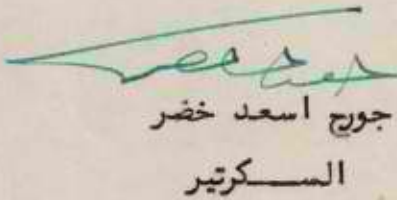 جورج اسعد خضر
الســكرتير